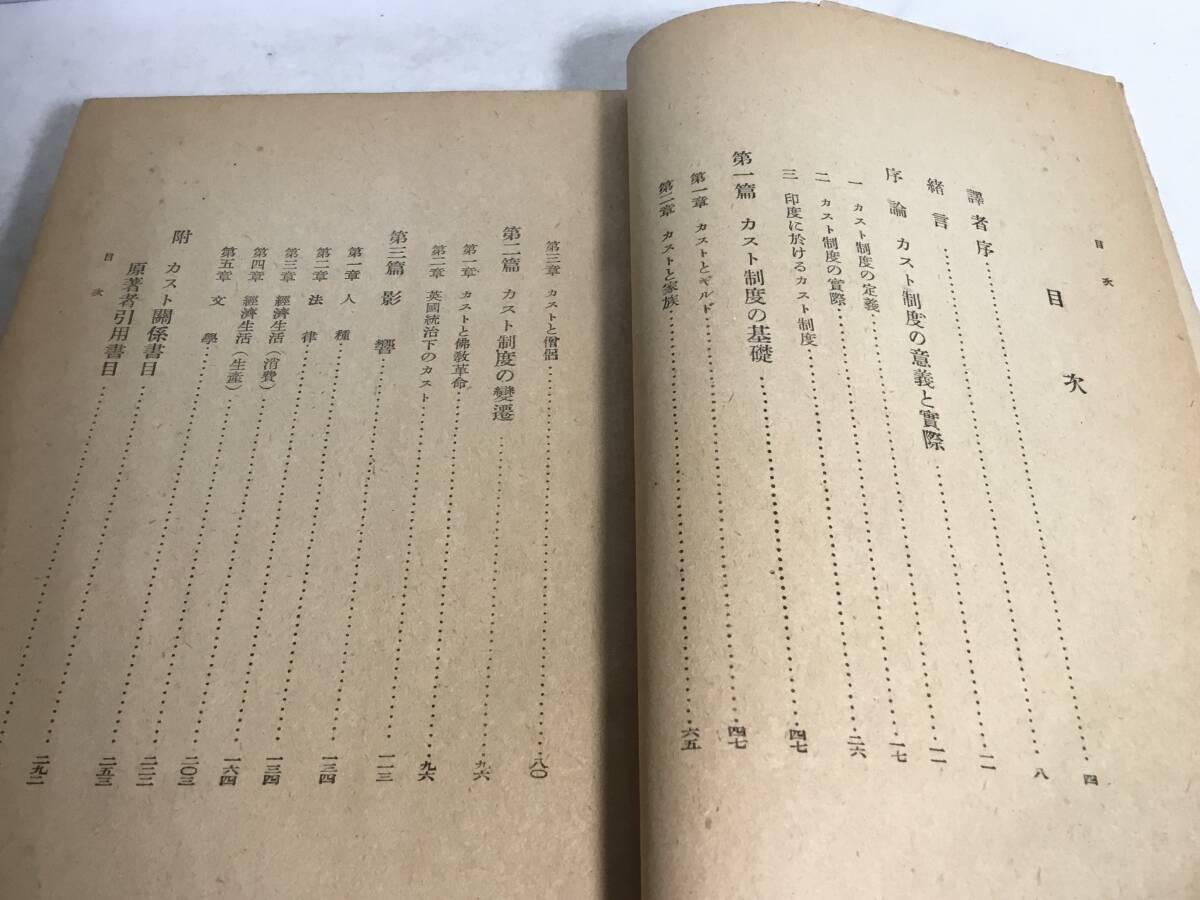 目次
目次
譯者序……四
緒言……八
序論 カスト制度の意義と實際……一一
一 カスト制度の定義……一一
二 カスト制度の實際……一七
三 印度に於けるカスト制度……二六
第一篇 カスト制度の基礎……四七
第一章 カストとギルド……四七
第二章 カストと家族……六五
第三章 カストと僧侶……八〇
第二篇 カスト制度の變遷……九六
第一章 カストと佛敎革命……九六
第二章 英國統治下のカスト……一一三
第三篇 影響……一三四
第一章 人種……一三四
第二章 法律……一六四
第三章 經濟生活(消費)……二〇三
第四章 經濟生活(生產)……二二二
第五章 文學……二五三
附 カスト關係書目……二九一
原著者引用書目……
目次